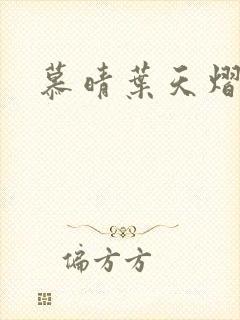 慕晴葉天熠
偏方方